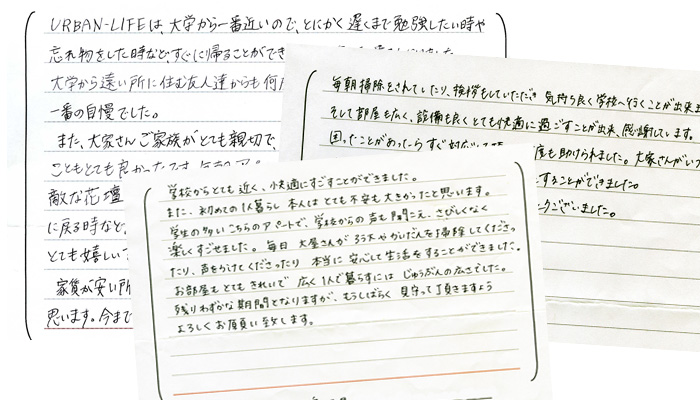 URBAN-LIFEは、大学から一番近いので、とにかく遅くまで勉強したい時や
忘れ物をした時など、すぐに帰ることができ
大学から遠い所に住む友人達からも何
一番の自慢でした。
また、大家さんご家族がとても親切で、
こともとても良かったです。
敵な花壇
に戻る時など、
とても嬉しい
家賃が安い所
思います。今まで
毎朝掃除をされていたり、挨拶もしていただき 気持ち良く学校へ行くことが出来
そして部屋も広く、設備も良くとても快適に過ごすことが出来、感謝しています。
困ったことがあったらすぐ対応
度も助けられました。大家さんがいつ
することができました。
うございました。
学校からとても近く、快適にすごすことができました。
また、初めての1人暮らし 本人はとても不安も大きかったと思います。
学生の多いこちらのアパートで、学校からの声も聞こえ、さびしくなく
楽しくすごせました。毎日 大屋さんが ろう下やかいだんを掃除してくださっ
たり、声をかけてくださったり 本当に安心して生活をすることができました。
お部屋もとてもきれいで 広く1人で暮らすには じゅうぶんの広さでした。
残りわずかな期間となりますが、もうしばらく 見守って頂きますよう
よろしくお願い致します。